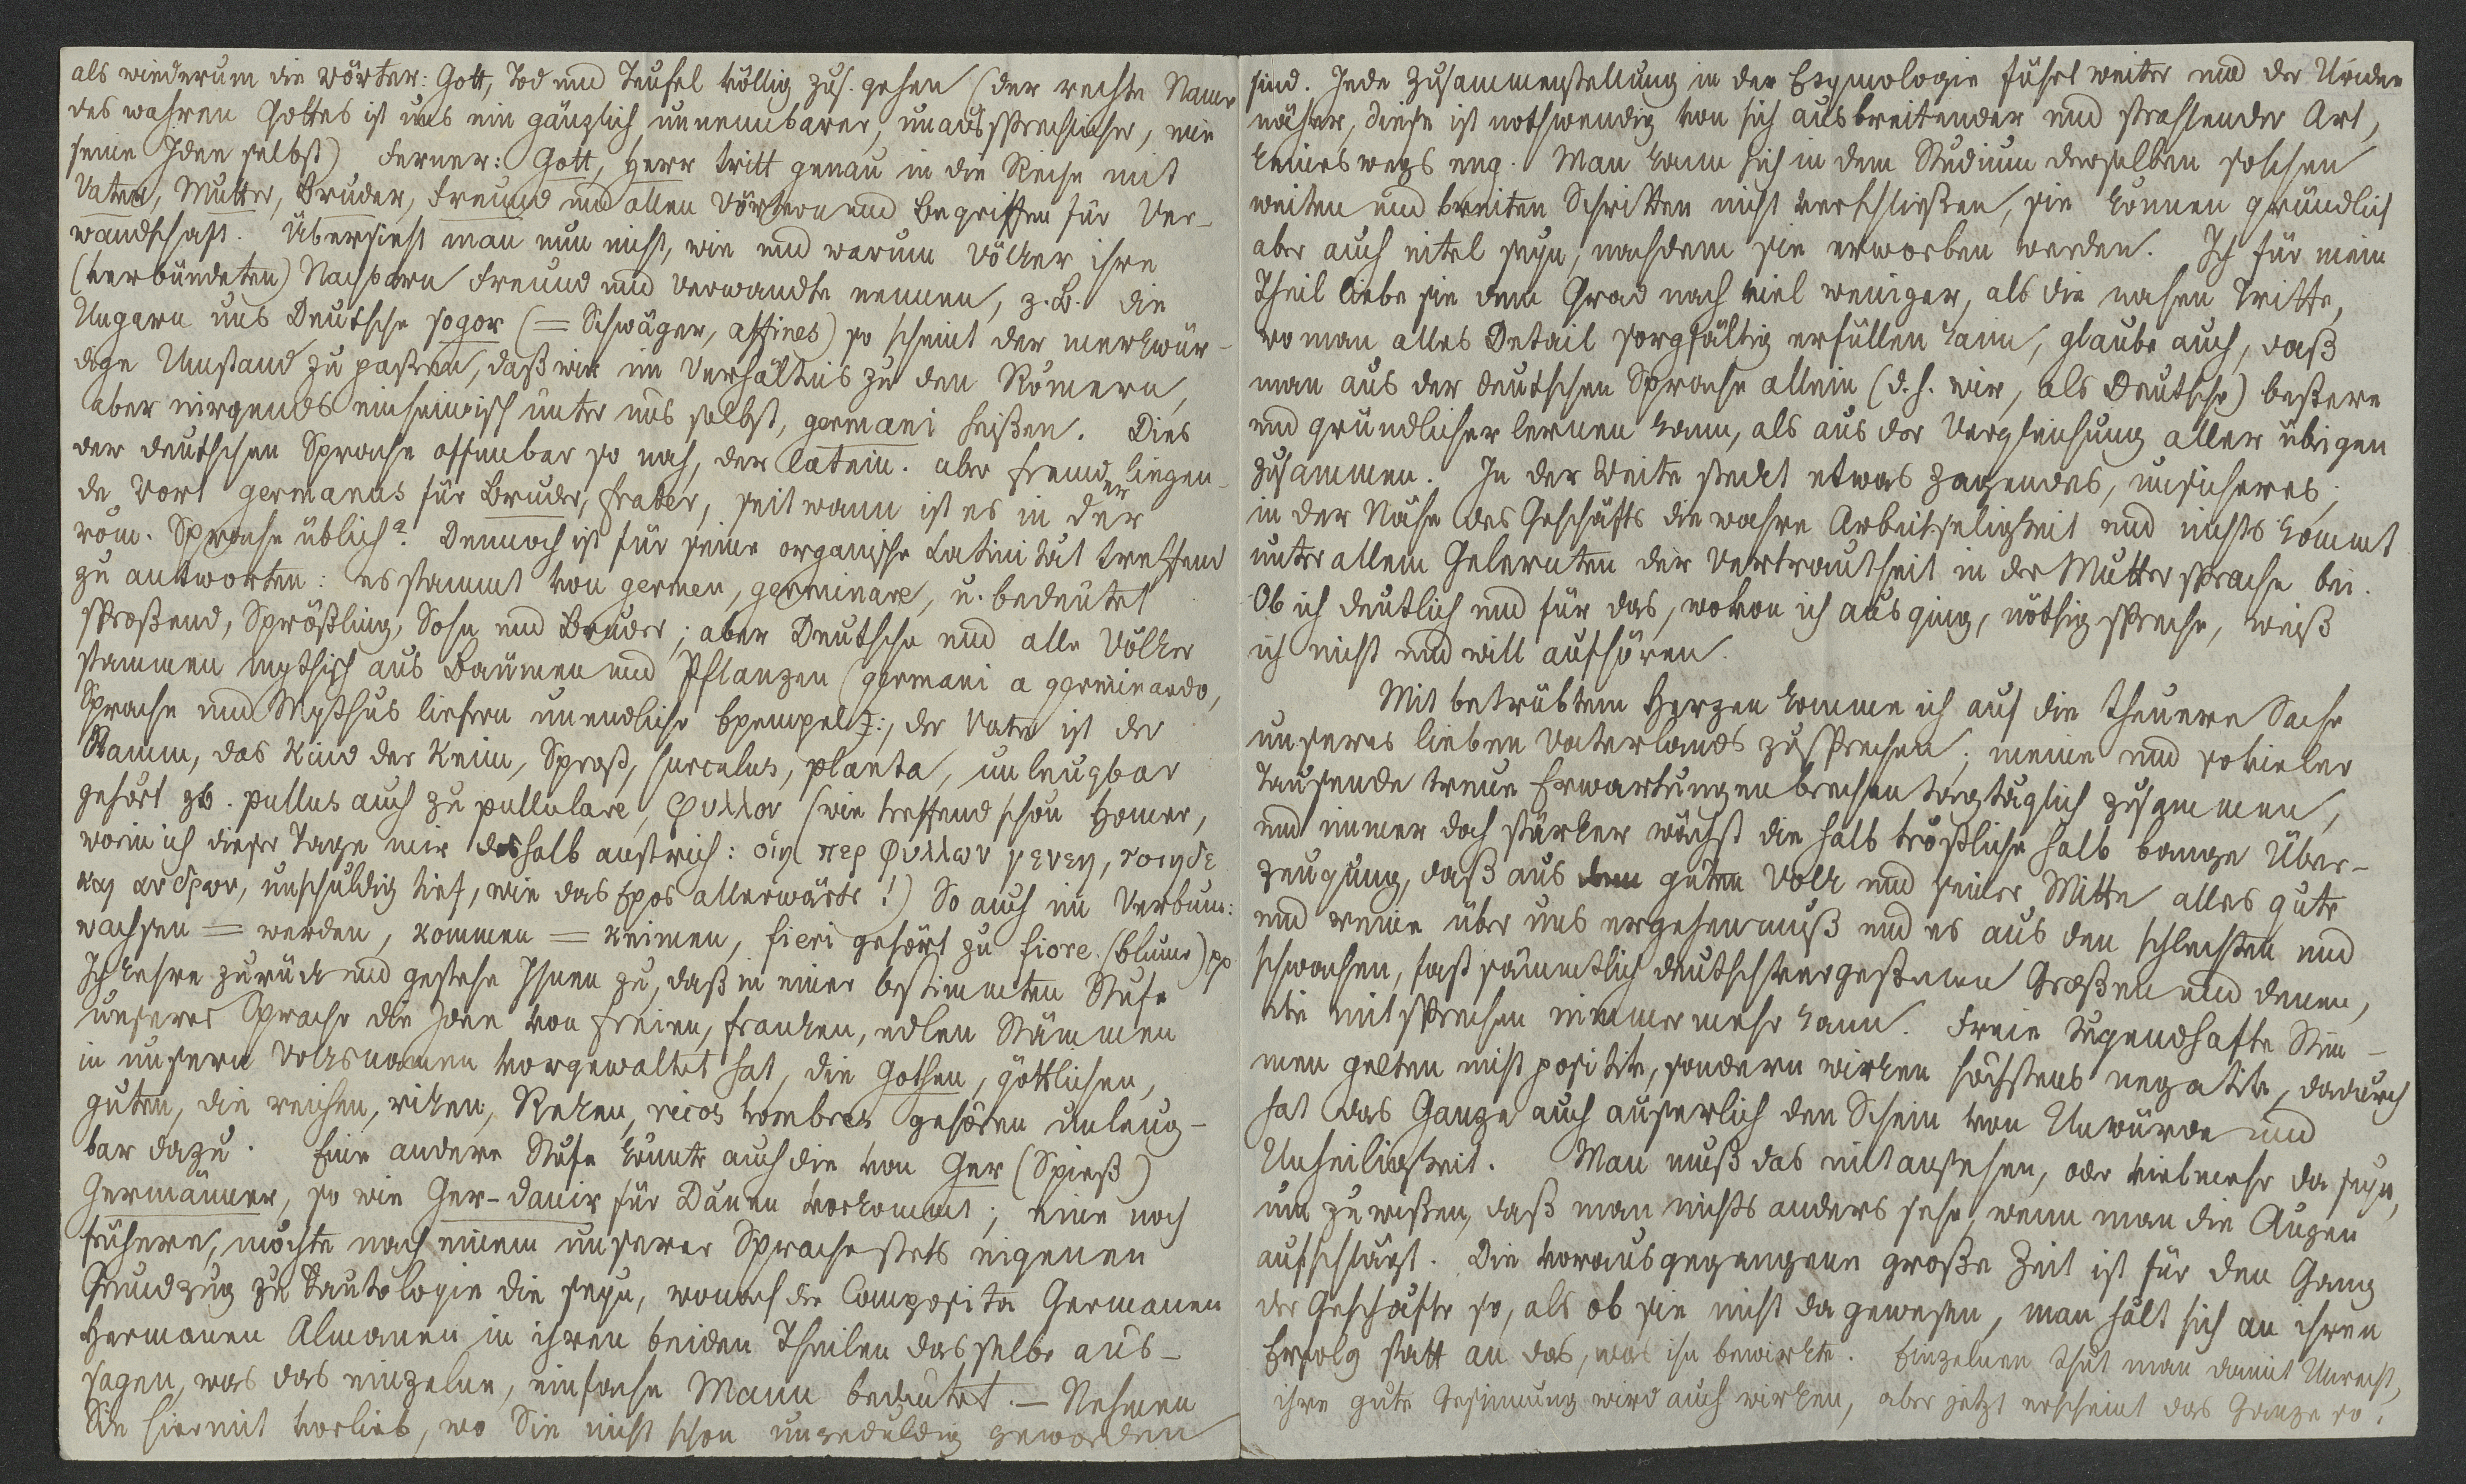 als wiederum die Wörter: Gott, Tod und Teufel völlig zus. gehen (der rechte Name
des wahren Gottes ist uns ein gänzlich unnennbarer, unaussprechlicher, wie
seine Idee selbst) Ferner: Gott, Herr tritt genau in die Reihe mit
Vater, Mutter, Bruder, Freund und allen Wörtern und Begriffen für Ver-
wandschaft. Übersieht man nun nicht, wie und warum Völker ihre
(verbündeten) Nachbarn Freund und Verwandte nennen, z.B. die
Ungarn uns Deutsche sogor (= Schwäger, affines) so scheint der merkwür-
dige Umstand zu paßen, daß wir im Verhältnis zu den Römern,
aber nirgends einheimisch unter uns selbst, germani heißen. Dies
der deutschen Sprache offenbar so nah, der latein. aber fremder liegen-
de Wort germanus für Bruder, frater, seit wann ist es in der
röm. Sprache üblich? Dennoch ist für seine organische Latinität treffend
zu antworten: es stammt von germen, germinare, u. bedeutet
sproßend, Sprößling, Sohn und Bruder; aber Deutsche und alle Völker
stammen mythisch aus Bäumen und Pflanzen (germani a germinando,
Sprache und Mythus liefern unendliche Exempel:, der Vater ist der
Stamm, das Kind der Keim, Sproß, surculus, planta, unleugbar
gehört zb. pullus auch zu pullulare, φυλλον (wie treffend schon Homer,
worin ich dieser Tage mir deshalb anstrich: οιη περ φυλλων γενεη, τοιηδε
και ανδρων, unschuldig tief, wie das Epos allerwärts!) So auch im Verbum:
wachsen = werden, kommen = keimen, fieri gehört zu fiore (blume) pp
Ich kehre zurück und gestehe Ihnen zu, daß in einer bestimmten Stufe
unserer Sprache die Idee von freien, franken, edlen Stämmen
in unsern Volksnamen vorgewaltet hat, die Gothen, göttlichen,
guten, die reichen, riken, Reken, ricos hombres gehören unleug-
bar dazu. Eine andere Stufe könnte auch die von Ger (Spieß)
Germänner, so wie Ger-danir für Dänen vorkommt; eine noch
frühere, möchte nach einem unserer Sprache stets eigenen
Grundzug zu Tautologie die seyn, wonach die Composita Germanen
Hermanen Almanen in ihren beiden Theilen dasselbe aus-
sagen, was das einzelne, einfache Mann bedeutet. – Nehmen
Sie hiermit vorlieb, wo Sie nicht schon ungeduldig geworden
sind. Jede Zusammenstellung in der Etymologie führt weiter und der Uridee
näher, diese ist nothwendig von sich ausbreitender und strahlender Art,
keineswegs eng. Man kann sich in dem Studium derselben solchen
weiten und breiten Schritten nicht verschließen, sie können gründlich
aber auch eitel seyn, nachdem sie erworben werden. Ich für mein
Theil liebe sie dem Grad nach viel weniger, als die nahen Tritte,
wo man alles Detail sorgfältig erfüllen kann, glaube auch, daß
man aus der deutschen Sprache allein (d.h. wir, als Deutsche) beßere
und gründlicher lernen kann, als aus der Vergleichung aller übrigen
zusammen. In der Weite steckt etwas zagendes, unsicheres;
in der Nähe des Geschäfts die wahre Arbeitseligkeit und nichts kommt
unter allem Gelernten der Vertrautheit in der Muttersprache bei.
Ob ich deutlich und für das, wovon ich ausging, nöthig spreche, weiß
ich nicht und will aufhören.
Mit betrübtem Herzen komme ich auf die theuere Sache
unseres lieben Vaterlands zu sprechen; meine und so vieler
Tausende treue Erwartungen brechen tagtäglich zusammen,
und immer doch stärker wächst die halb tröstliche halb bange Über-
zeugung, daß aus dem guten Volk und seiner Mitte alles gute
und reine über uns ergehen muß und es aus den schlechten und
schwachen, fast sämmtlich deutschvergeßenen Großen und denen,
die mitsprechen nimmermehr kann. Freie tugendhafte Stim-
men gelten nicht positiv, sondern wirken höchstens negativ, dadurch
hat das Ganze auch äußerlich den Schein von Unwürde und
Unheiligkeit. Man muß das mit ansehen, oder vielmehr da seyn,
um zu wißen, daß man nichts anders sehe, wenn man die Augen
aufschlägt. Die vorausgegangene große Zeit ist für den Gang
der Geschäfte so, als ob sie nicht da gewesen, man hält sich an ihren
Erfolg statt an das, was ihn bewirkte. Einzelnen thut man damit Unrecht,
ihre gute Gesinnung wird auch wirken, aber jetzt erscheint das Ganze so.